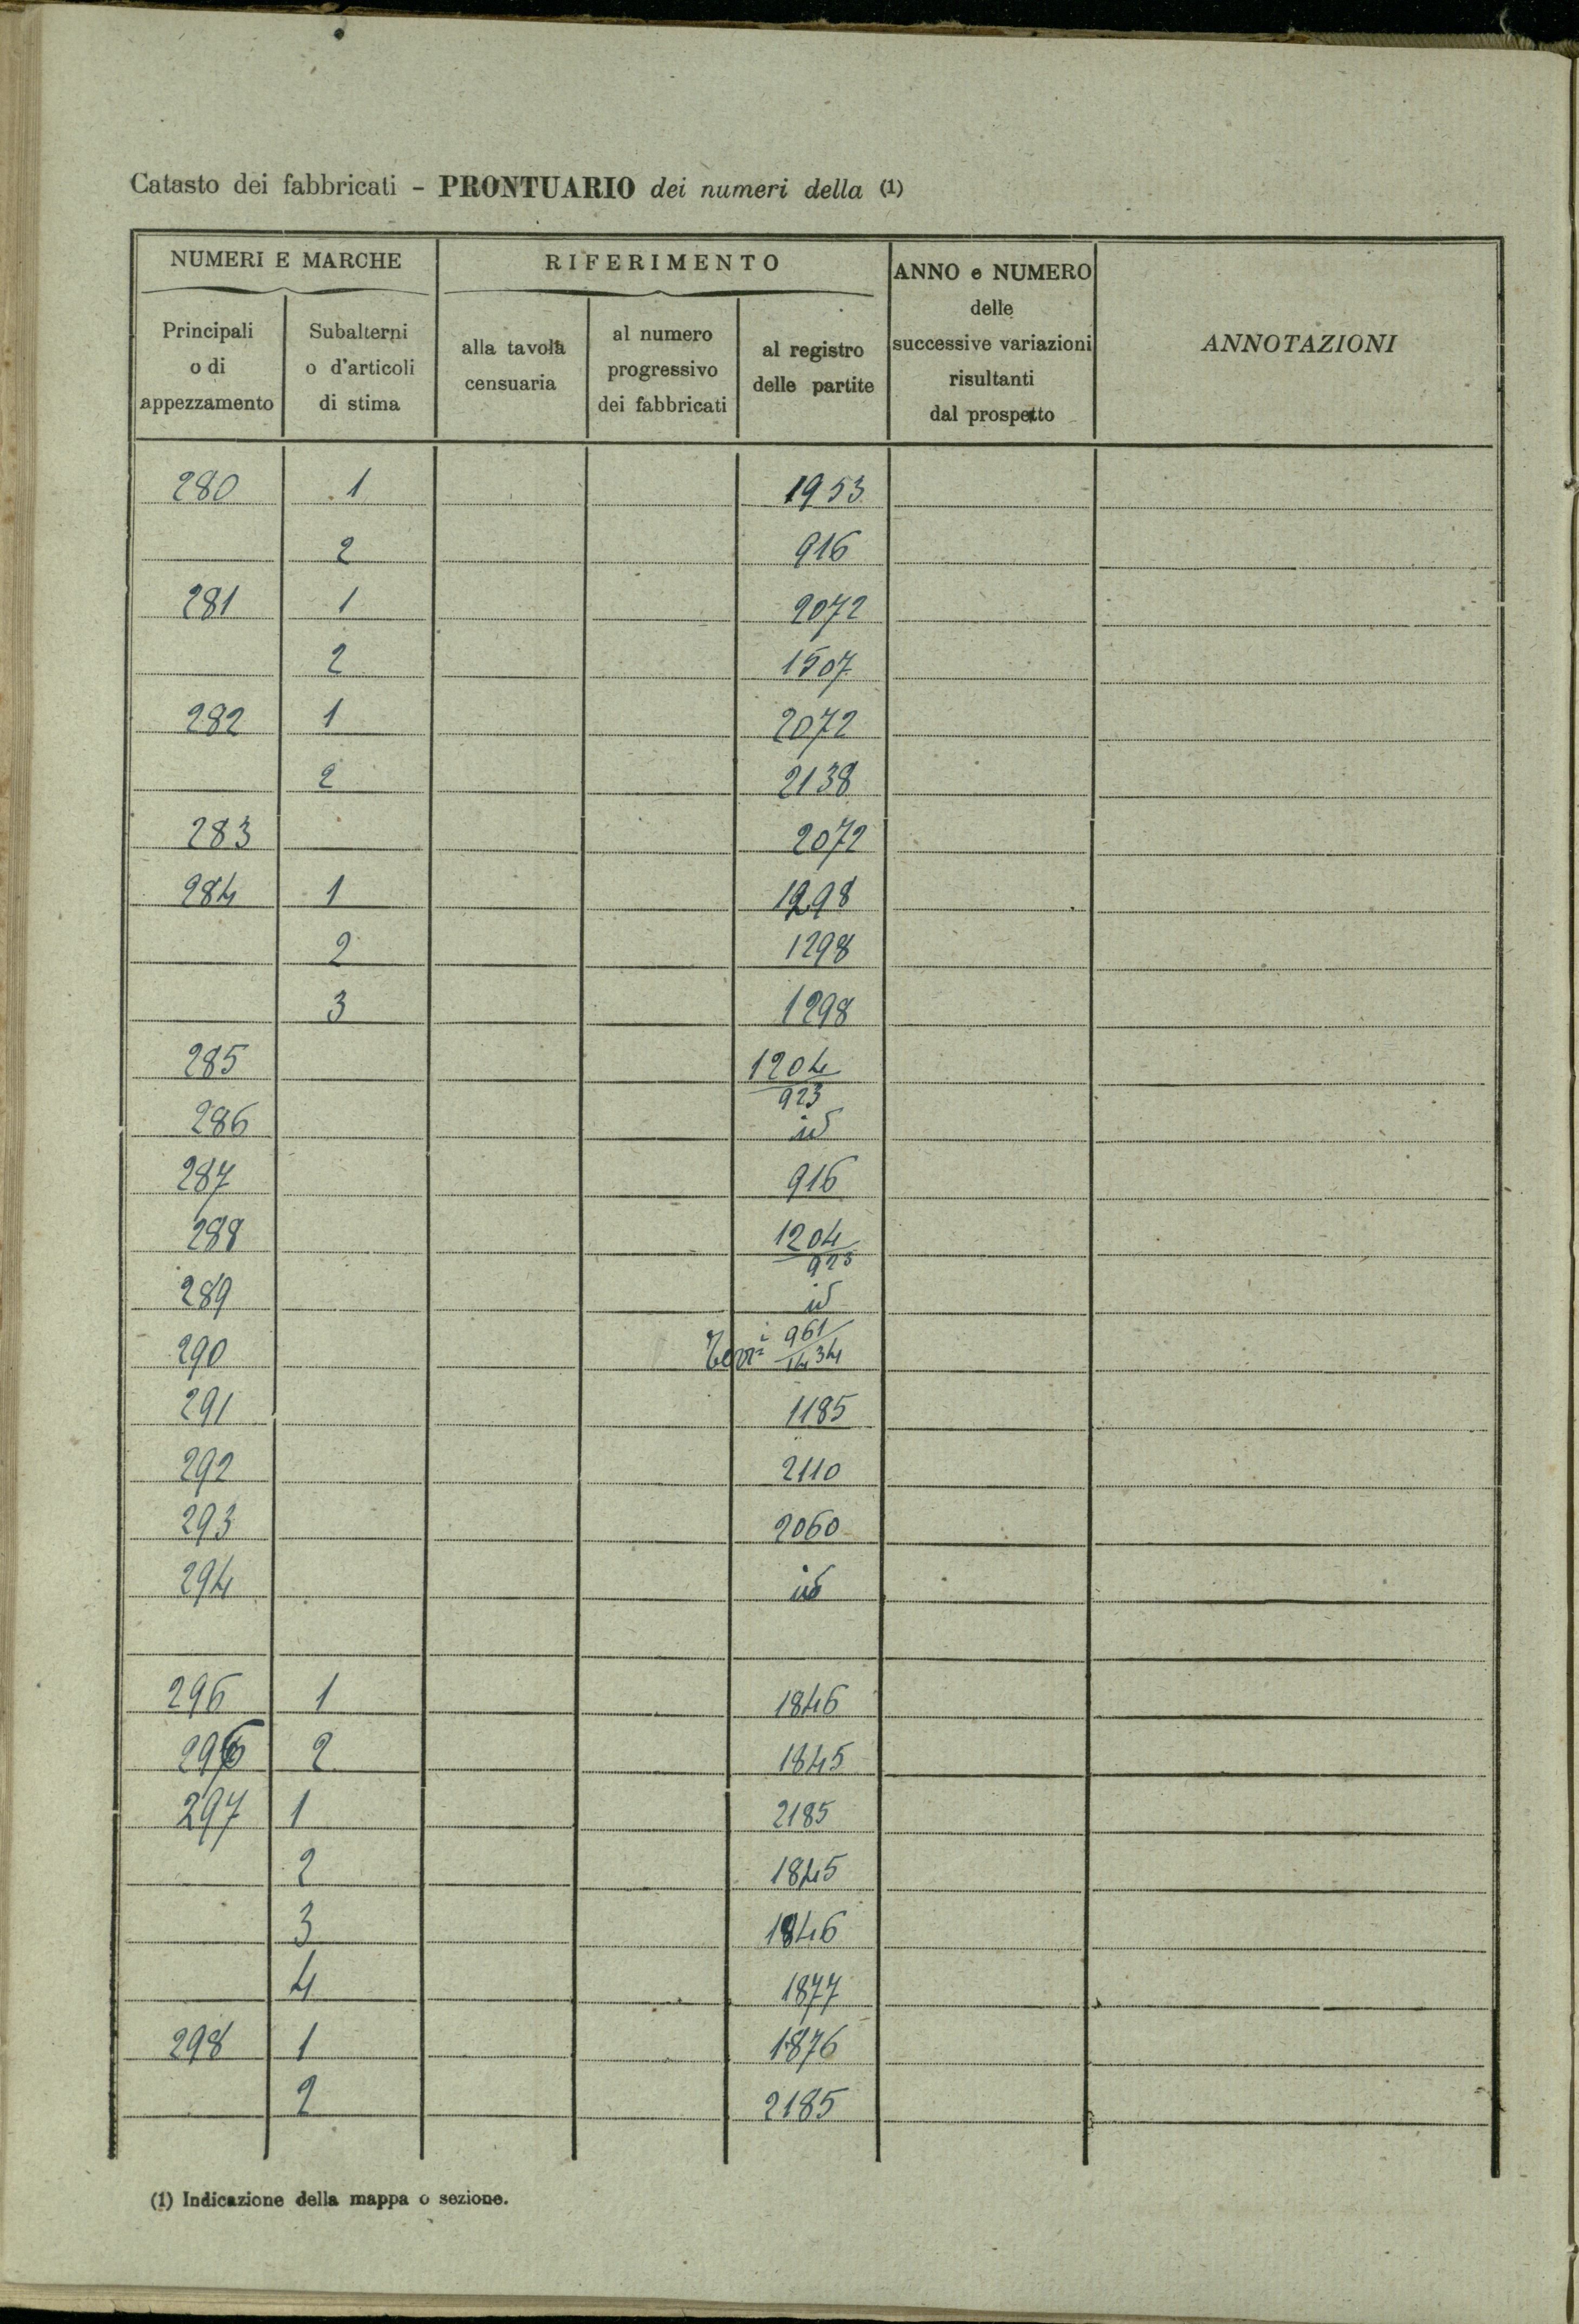 Catasto dei fabbricati - PRONTUARIO dei numeri della (1)
NUMERI E MARCHE
RIFERIMENTO
ANNO e NUMERO delle successive variazioni risultanti dal prospetto
ANNOTAZIONI
Principali o di appezzamento
Subalterni o d'articoli di stima
alla tavola censuaria
al numero progressivo dei fabbricati
al registro delle partite
280 1 1953
2 916
281 1 2072
2 1507
282 1 2072
2 2138
283 2072
284 1 1298
2 1298
3 1298
285 1204
923
286 id
287 916
288 1204
923
289 id
290 961
1434
291 1185
292 2110
293 2060
294 id
296 1 1846
296 2 1845
297 1 2185
2 1845
3 1846
4 1877
298 1 1876
2 2185
(1) Indicazione della mappa o sezione.